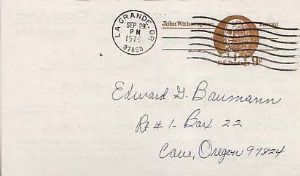 LA GRANDE, OR
SEP 29
PM
1976
97850
John Witherspoon
9¢
Edward D. Baumann
Rt #1-Box 22
Cove, Oregon 97824